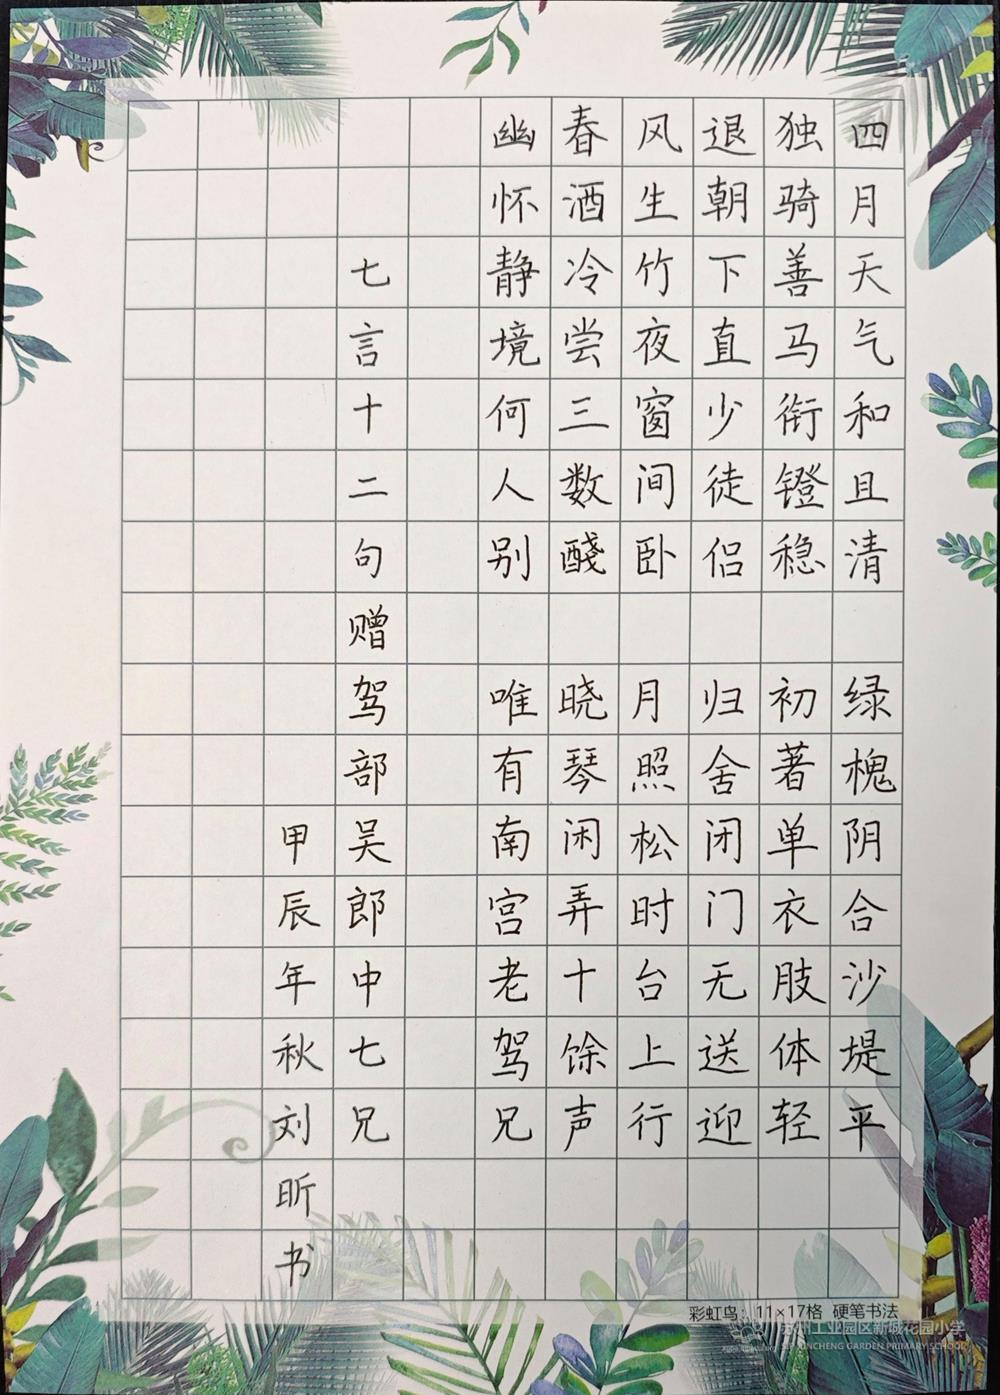 四月天气和且清 绿槐阴合沙堤平
独骑善马衔镫稳 初著单衣肢体轻
退朝下直少徒侣 归舍闭门无送迎
风生竹夜窗间卧 月照松时台上行
春酒冷尝三数醆 晓琴闲弄十馀声
幽怀静境何人别 唯有南宫老驾兄
七言十二句赠驾部吴郎中七兄
甲辰年秋刘昕书
彩虹鸟：11×17格 硬笔书法
苏州工业园区新城花园小学
SIP XINCHENG GARDEN PRIMARY SCHOOL